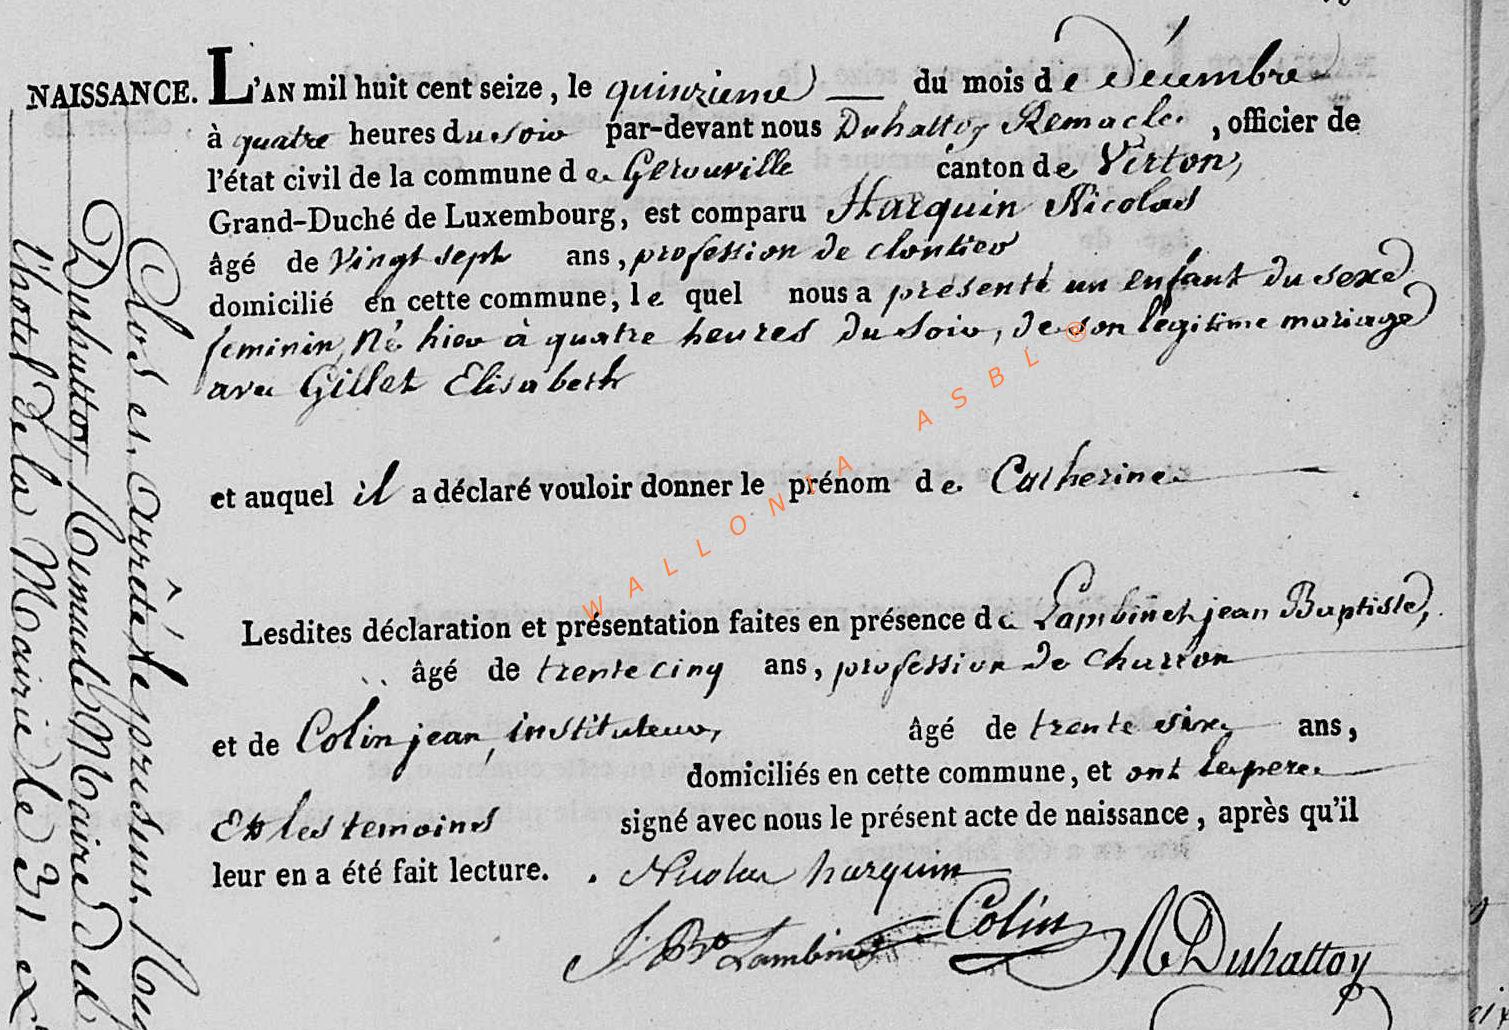 NAISSANCE. L'AN mil huit cent seize, le quinzieme du mois de Décembre
à quatre heures du soir par-devant nous Duhattoy Remacle, officier de
l'état civil de la commune de Gerouville canton de Virton,
Grand-Duché de Luxembourg, est comparu Harquin Nicolas
âgé de vingt sept ans, profession de cloutier
domicilié en cette commune, le quel nous a présenté un enfant du sexe
feminin, né hier à quatre heures du soir, de son légitime mariage
avec Gillet Elisabeth
et auquel il a déclaré vouloir donner le prénom de Catherine
Lesdites déclaration et présentation faites en présence de Lambinet jean Baptiste,
âgé de trente cinq ans, profession de charron
et de Colin jean, instituteur, âgé de trente six ans,
domiciliés en cette commune, et ont le pere
Et les temoins signé avec nous le présent acte de naissance, après qu'il
leur en a été fait lecture. Nicolas harquin
J. Bte Lambinet Colin R Duhattoy
Clos et arrêté le présent
Duhattoy Remacle Maire de
l'hotel de la Mairie le 31
WALLONIA ASBL ®